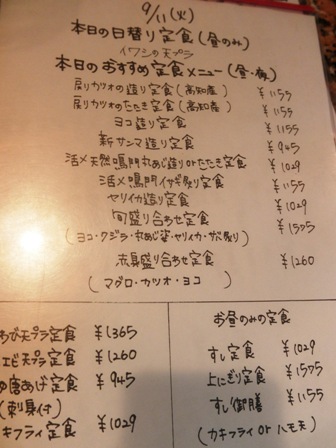 9/11(火)
本日の日替り定食(昼のみ)
イワシの天プラ
本日のおすすめ定食メニュー(昼・夜)
戻りカツオの造り定食(高知産) ¥1155
戻りカツオのたたき定食(高知産) ¥1155
ヨコ造り定食 ¥1155
新サンマ造り定食 ¥945
活〆天然鳴門丸あじ造りorたたき定食 ¥1029
活〆鳴門イサギ炙り定食 ¥1155
ヤリイカ造り定食 ¥1029
旬盛り合わせ定食 ¥1575
(ヨコ・クジラ・丸あじ・ヤリイカ・サバ炙り)
赤身盛り合わせ定食 ¥1260
(マグロ・カツオ・ヨコ)
天プラ定食 ¥1365
エビ天プラ定食 ¥1260
唐あげ定食 ¥945
(刺身付)
キフライ定食 ¥1029
お昼のみの定食
すし定食 ¥1029
上にぎり定食 ¥1575
すし御膳 ¥1155
(カキフライ or ハモ天)